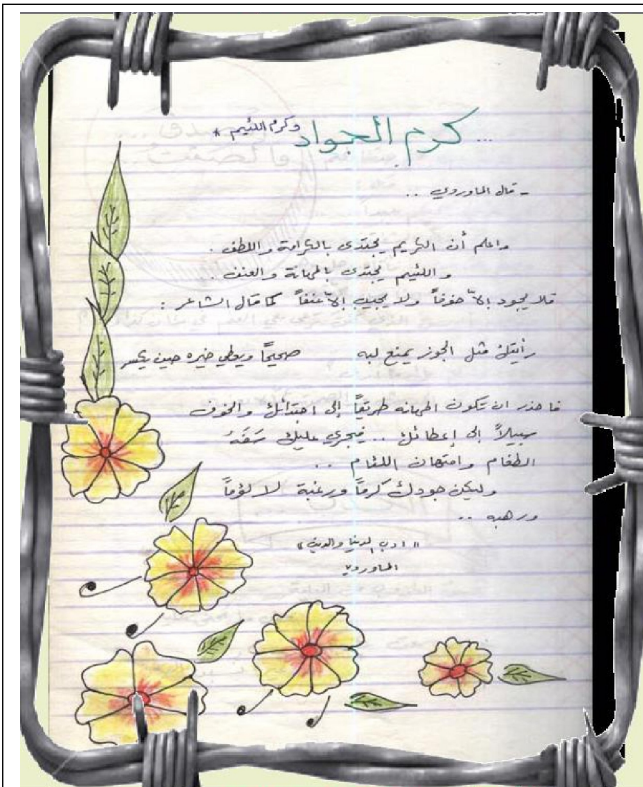 ... كرم الجواد وكرم اللئيم *
- قال الماوردي ..
واعلم أن الكريم يجتدى بالكرامة واللطف .
واللئيم يجتدى بالمهانة والعنف .
فلا يجود إلاّ خوفاً ولا يجيب إلاّ عنفاً كما قال الشاعر :
رأيتك مثل الجوز يمنع لبه صحيحاً ويعطي خيره حين يكسر
فاحذر ان تكون المهانه طريقاً إلى اجتدائك والخوف
سبيلاً إلى إعطائك .. فيجري عليك سَفَهُ
الطغام وامتهان اللئام ..
وليكن جودك كرماً ورغبة لا لؤماً
ورهبه ..
"ادب الدنيا والدين"
الماوردي